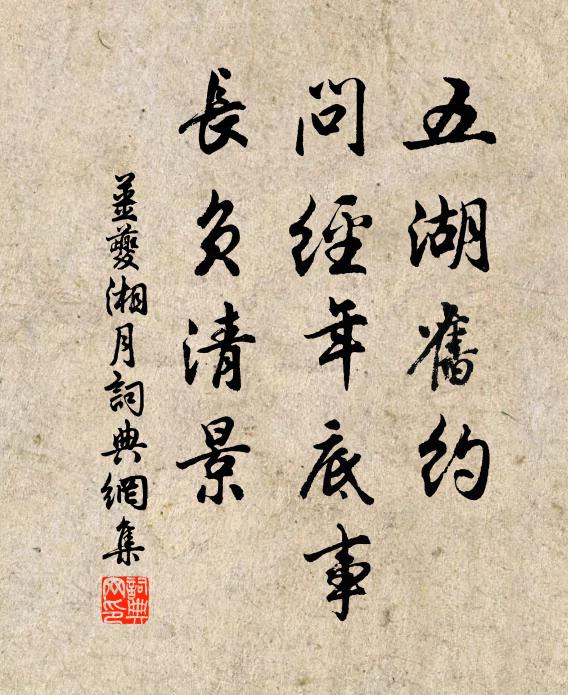 五湖舊約
問經年底事
長負清景
姜夔湘月詞典網集
詞典网印